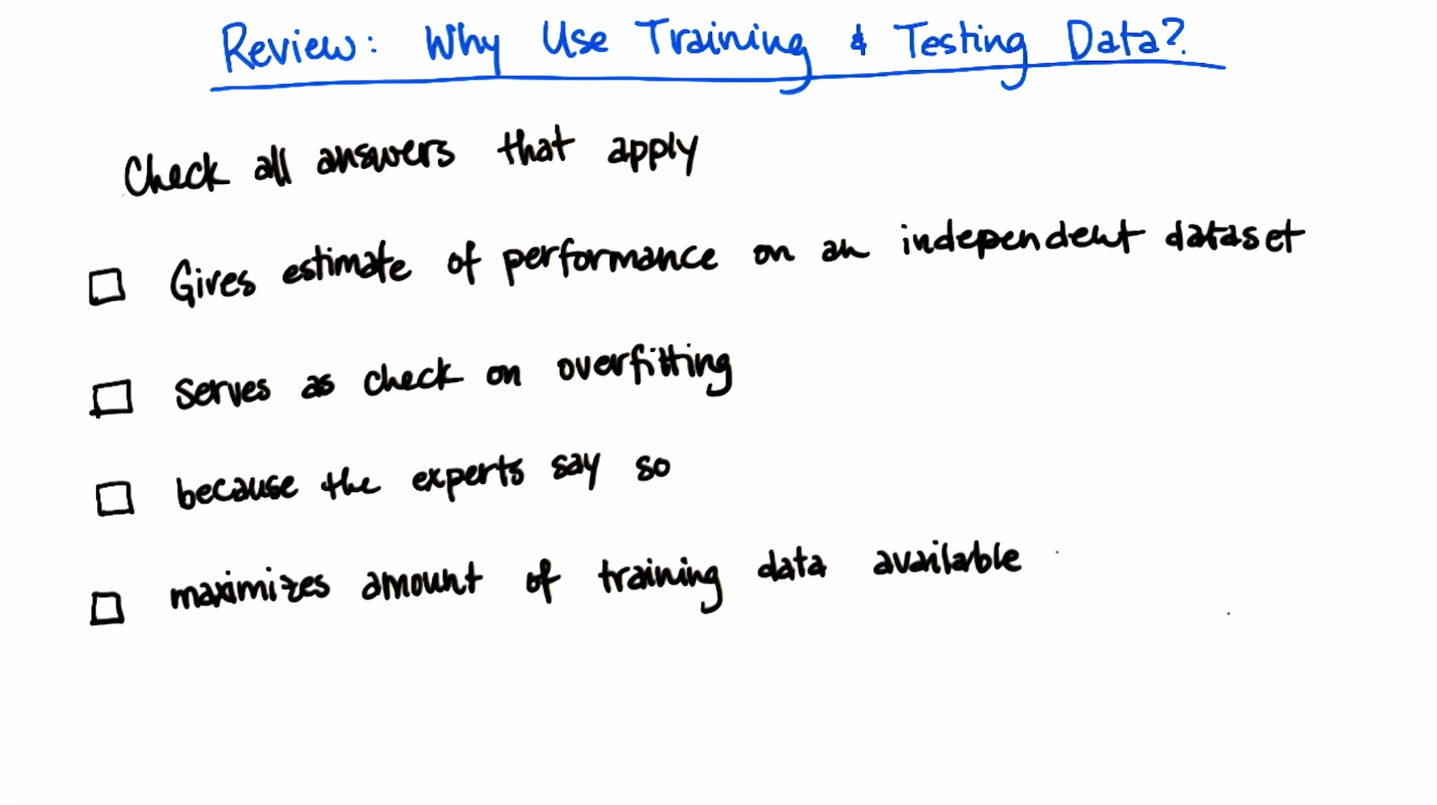 Review: Why Use Training & Testing Data?
Check all answers that apply
Gives estimate of performance on an independent dataset
Serves as check on overfitting
because the experts say so
maximizes amount of training data available